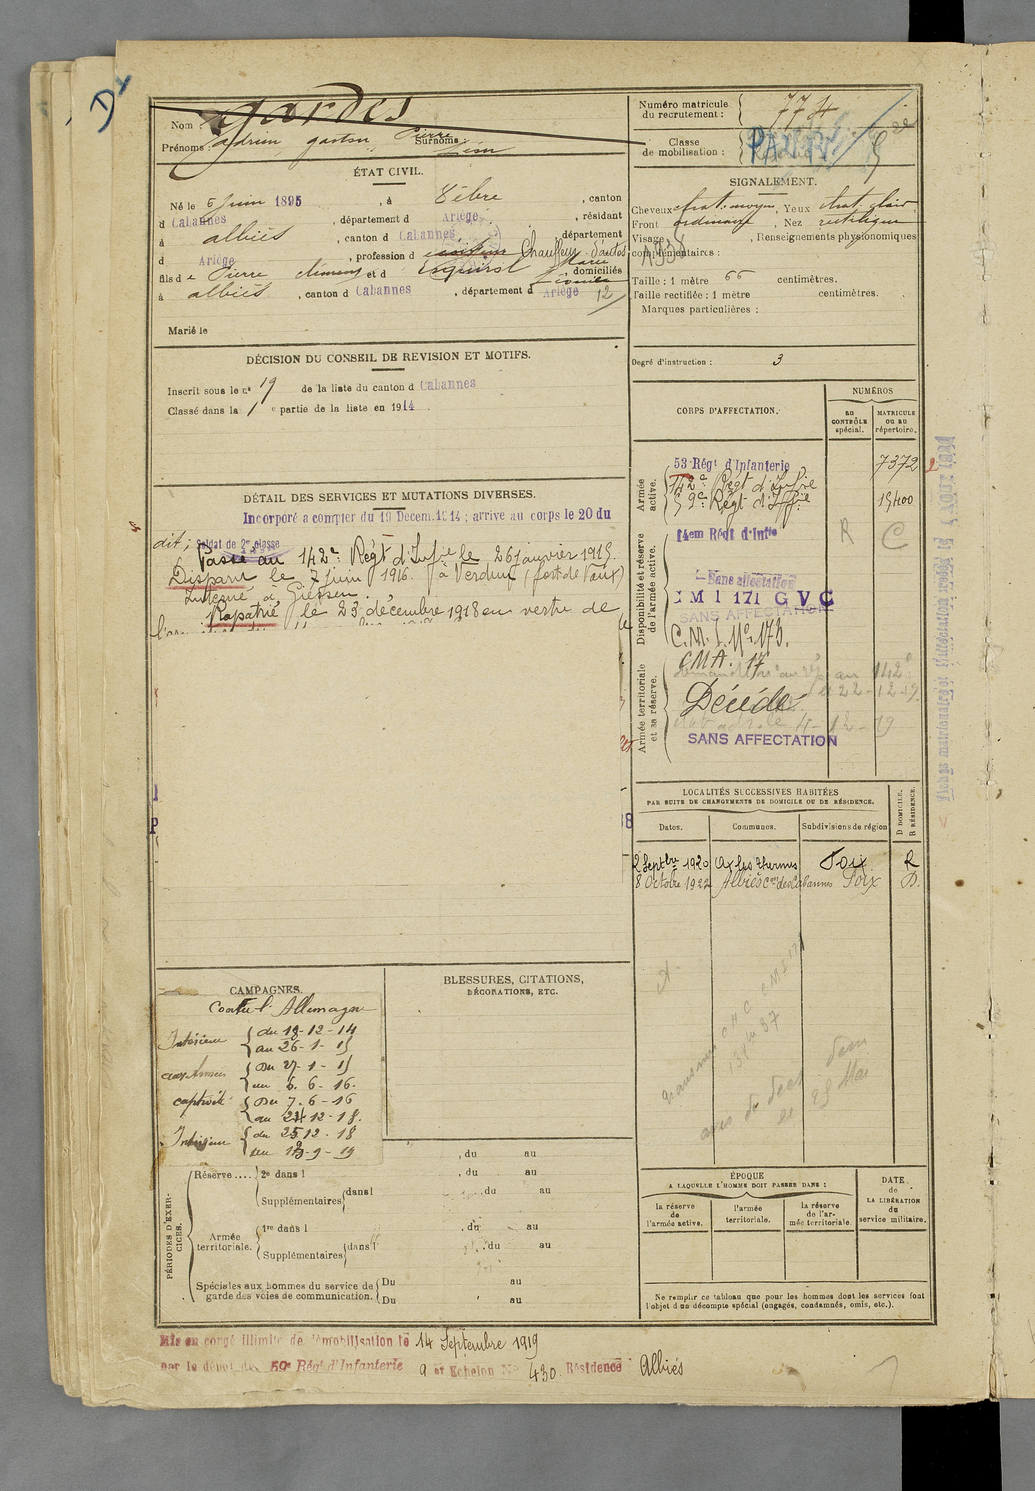 Nom : Gardes
Prénoms : Adrien, gaston, Pierre
Surnoms : Léon
ÉTAT CIVIL.
Né le 5 Juin 1895, à Vèbre, canton
d Cabannes, département d Ariège, résidant
à albiès, canton d Cabannes, département
d Ariège, profession d Chauffeur d'autos
fils de Pierre clément et d Esquirol Marie, domiciliés
à albiès, canton d Cabannes, département d Ariège
12
Marié le
DÉCISION DU CONSEIL DE REVISION ET MOTIFS.
Inscrit sous le nº 19 de la liste du canton d Cabannes
Classé dans la 1 e partie de la liste en 1914
DÉTAIL DES SERVICES ET MUTATIONS DIVERSES.
Incorporé a compter du 19 Decem. 1914 ; arrive au corps le 20 du
dit ; Soldat de 2e classe
Passé au 142e Régt d'Infie le 26 janvier 1915.
Disparu le 7 juin 1916 à Verdun (fort de Vaux)
Interné à Giessen.
Rapatrié le 23 décembre 1918 en vertu de
CAMPAGNES.
Contre l'Allemagne
Intérieur du 19-12-14
au 26-1-15
aux Armées Du 27-1-15
au 6.6-16.
captivité Du 7.6-16
au 24-12-18.
Intérieur du 25 12-18
au 13-9-19
BLESSURES, CITATIONS,
DÉCORATIONS, ETC.
PÉRIODES D'EXERCICES.
Réserve .... 2e dans l , du au
, du au
Supplémentaires dans l , du au
Armée territoriale. 1re dans l , du au
Supplémentaires dans l , du au
Spéciales aux hommes du service de garde des voies de communication. Du au
Du au
Mis en congé illimité de démobilisation le 14 Septembre 1919
par le dépôt du 59e Régt d'Infanterie 9 er Echelon No 430. Résidence Albiès
Numéro matricule du recrutement : 774
Classe de mobilisation :
SIGNALEMENT.
Cheveux chat. moyen, Yeux chat. clair
Front ordinaire, Nez rectiligne
Visage , Renseignements physionomiques
complémentaires :
Taille : 1 mètre 66 centimètres.
Taille rectifiée : 1 mètre centimètres.
Marques particulières :
Degré d'instruction : 3
CORPS D'AFFECTATION.
NUMÉROS
AU CONTRÔLE spécial.
MATRICULE OU AU répertoire.
Armée active.
53e Régt d'Infanterie 7372
142e Régt d'Infie
59e Régt d'Inf. 15400
Disponibilité et réserve de l'armée active.
14em Régt d'Infie R C
Sans affectation
C M 1 171 G V C
SANS AFFECTATION
C.M.I. No 173.
Armée territoriale et sa réserve.
CMA. 17
Décédé
SANS AFFECTATION
LOCALITÉS SUCCESSIVES HABITÉES
PAR SUITE DE CHANGEMENTS DE DOMICILE OU DE RÉSIDENCE.
Dates.
Communes.
Subdivisions de région
D DOMICILE.
R RÉSIDENCE.
2 Septbre 1920 Ax les Thermes Foix R
8 Octobre 1922 Albiès con des Cabannes Foix D.
ÉPOQUE
A LAQUELLE L'HOMME DOIT PASSER DANS :
la réserve de l'armée active.
l'armée territoriale.
la réserve de l'armée territoriale.
DATE de LA LIBÉRATION du service militaire.
Ne remplir ce tableau que pour les hommes dont les services font
l'objet d'un décompte spécial (engagés, condamnés, omis, etc.).